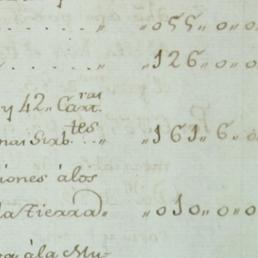 " "055"0"0
" "126"0"0
y 42" Cart.ras
nas Sirb.tes " "161"6"0
iones álos
la Tierra" "010"0"0
va ála Mu-